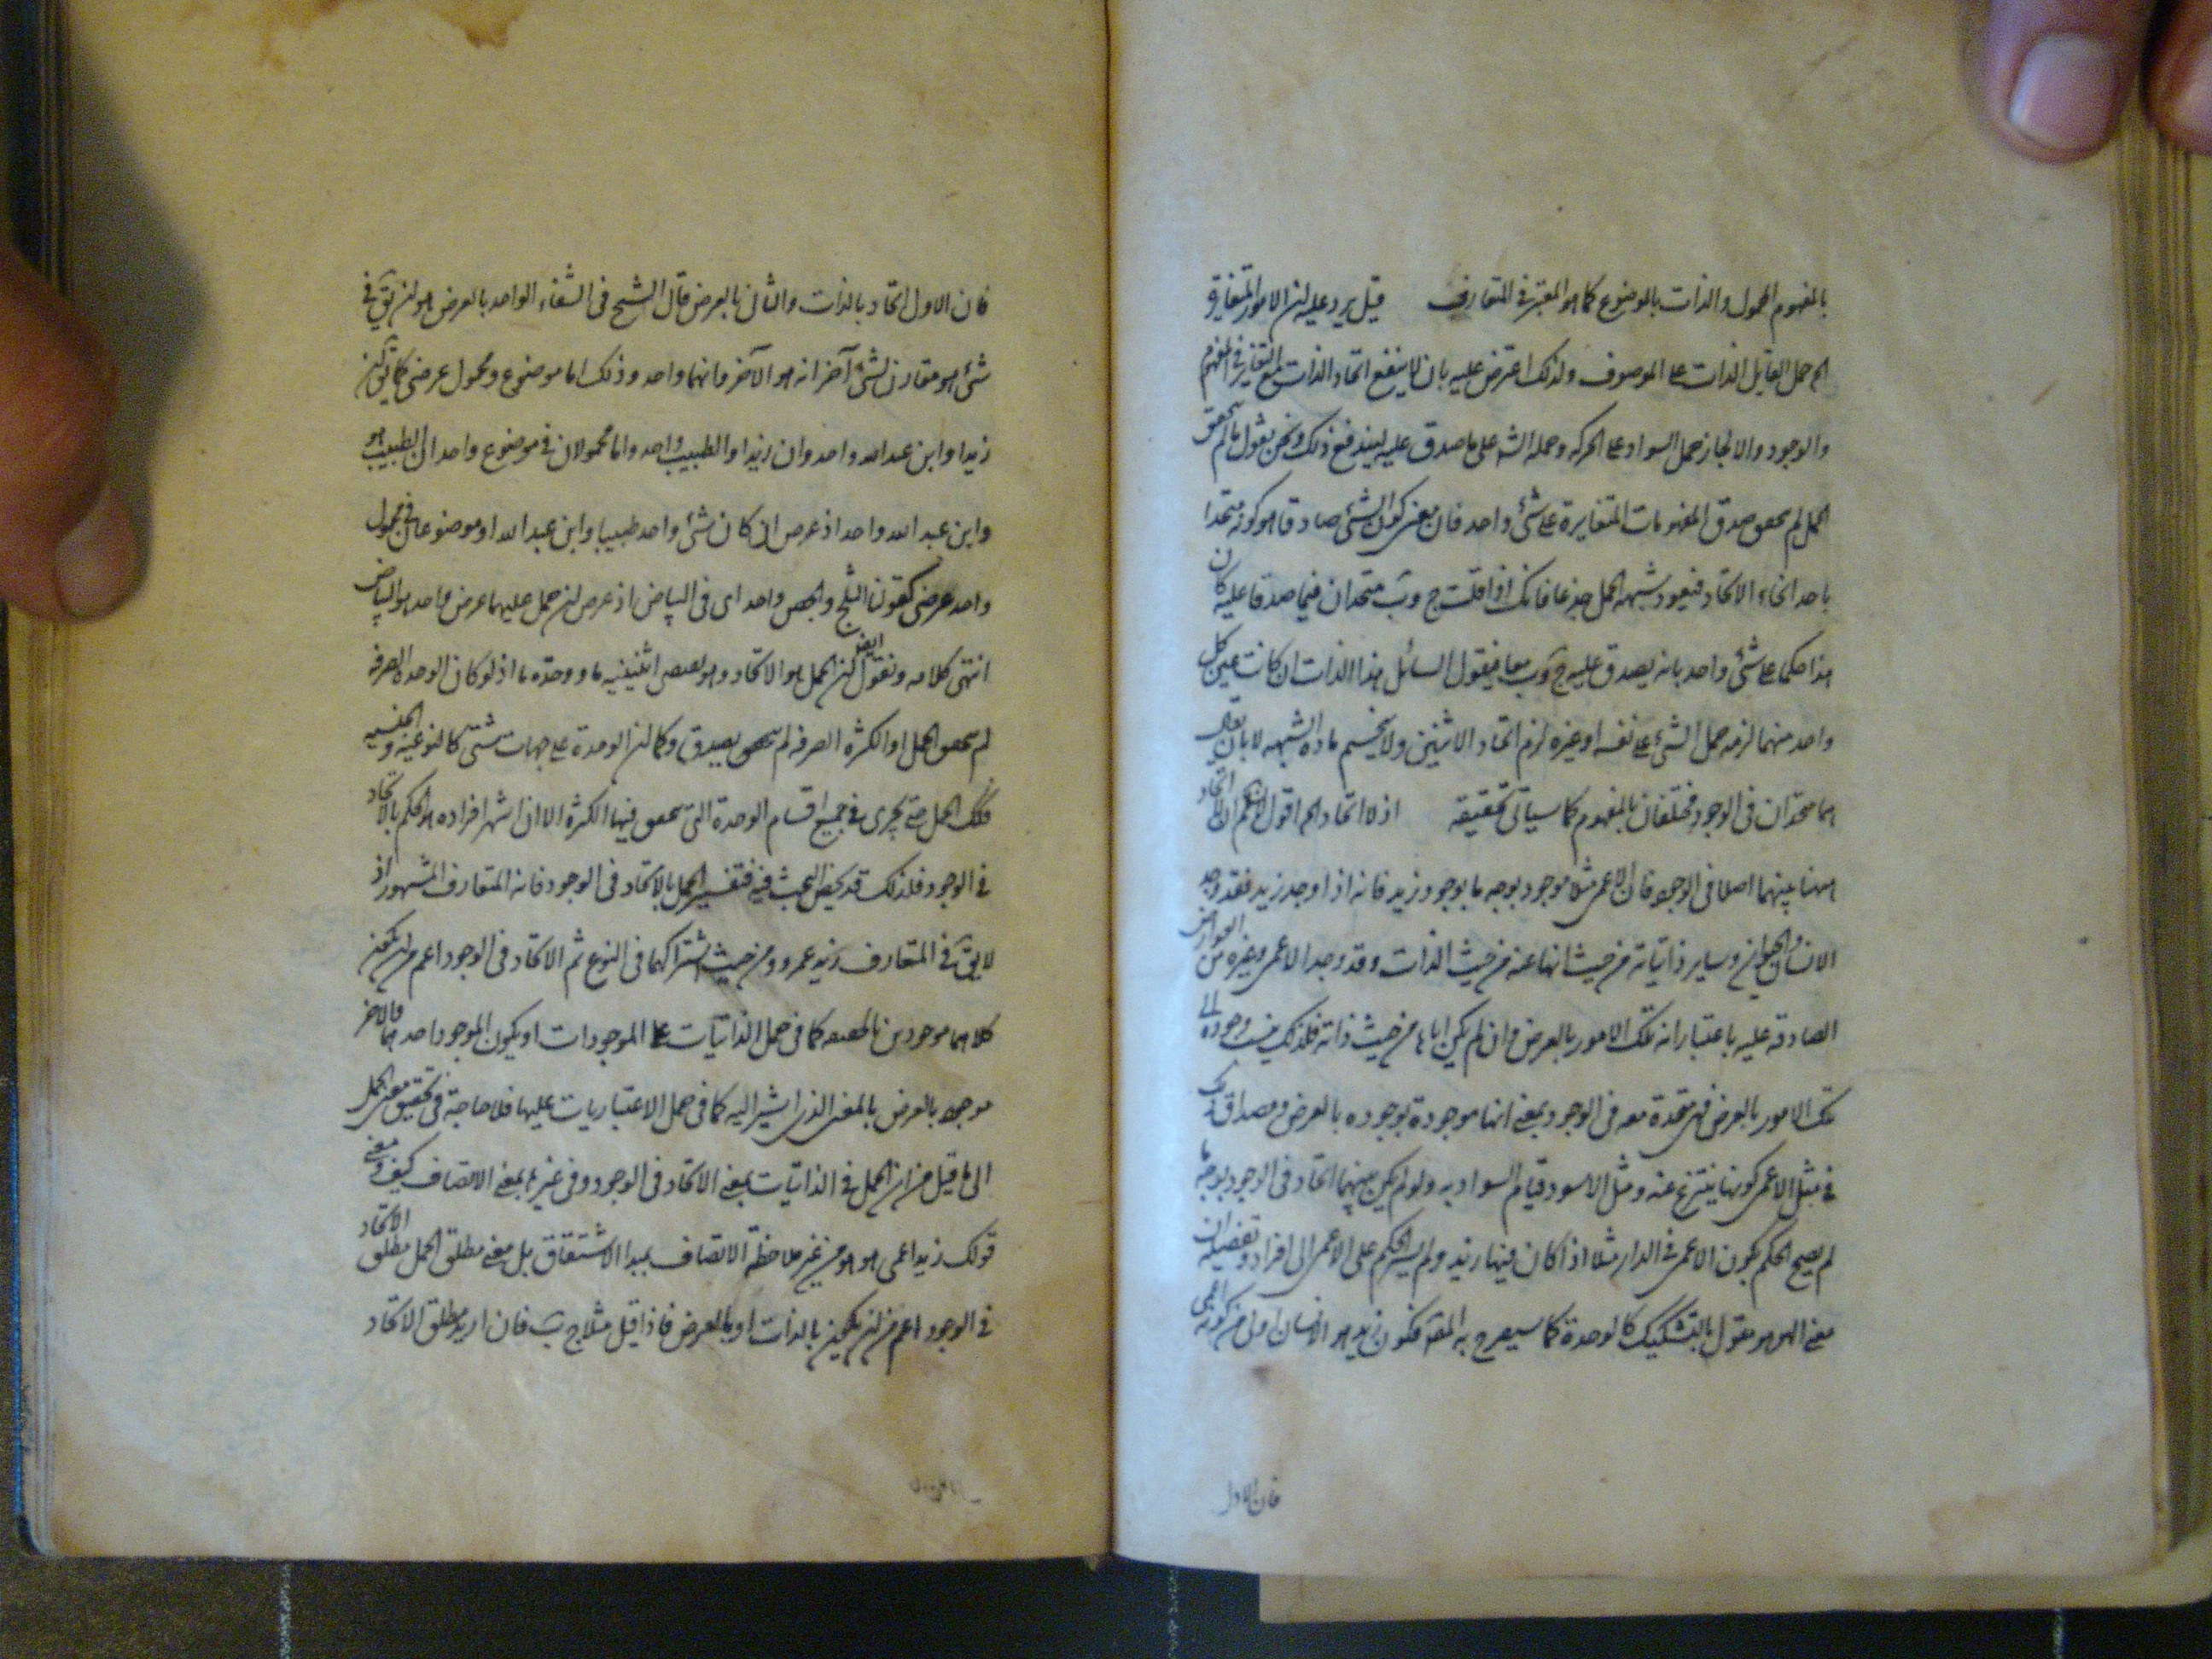 بالمفهوم المحمول والذات بالموضوع كما هو المعتبر في المتعارف قيل يرد عليه ان الامور المتغايرة
الخ حمل القابل الذات على الموصوف ولذلك اعترض عليه بان لا ينفع اتحاد الذات مع التغاير في المفهوم
والوجود والا لجاز حمل السواد على الحركة وحمله الش على ما صدق عليه ليندفع ذلك ونحن نقول ما لم يتحقق
الحمل لم يتحقق صدق المفهومات المتغايرة على شئ واحد فان معنى كون الشئ صادقا هو كونه متحدا
باحد انحاء الاتحاد فيعود شبهة الحمل جذعا فانك اذا قلت ج وب متحدان فيما صدقا عليه كان
هذا حكما على شئ واحد بانه يصدق عليه ج وب معا فيقول السائل هذا الذات ان كانت عين كل
واحد منهما لزمه حمل الشئ على نفسه او غيره لزم اتحاد الاثنين ولا ينحسم مادة الشبهة الا بان يقال
هما متحدان في الوجود مختلفان بالمفهوم كما سياتي تحقيقه اذ لا اتحاد الخ اقول لا نسلم ان لا اتحاد
ههنا بينهما اصلا في الوجود فان الاعمى مثلا موجود بوجه ما بوجود زيد فانه اذا وجد زيد فقد وجد
الانسان والحيوان وساير ذاتياته من حيث انها عنه من حيث الذات وقد وجد الاعمى وغيره من العوارض
الصادقة عليه باعتبار انه تلك الامور بالعرض وان لم يكن اياها من حيث ذاته فلذلك ينسب وجوده الى
تلك الامور بالعرض فهي متحدة معه في الوجود بمعنى انها موجودة بوجوده بالعرض ومصداق ذلك
في مثل الاعمى كونها ينتزع عنه ومثل الاسود قيام السواد به ولو لم يكن بينهما اتحاد في الوجود بوجه ما
لم يصح الحكم بكون الاعمى في الدار مثلا اذا كان فيها زيد ولم يسر الحكم على الاعمى الى افراده وتفصيله ان
معنى الهوهو مقول بالتشكيك كالوحدة كما سيصرح به المص فكون زيد هو الانسان اولى من كونه اعمى
فان الاول
فان الاول اتحاد بالذات والثاني بالعرض قال الشيخ في الشفاء الواحد بالعرض هو ان يق في
شئ هو مقارن لشئ آخر انه هو الآخر وانهما واحد وذلك اما موضوع ومحمول عرضي كما يق ان
زيدا وابن عبد الله واحد وان زيدا والطبيب واحد واما محمولان في موضوع واحد ان الطبيب هو
وابن عبد الله واحد اذ عرض ان كان شئ واحد طبيبا وابن عبد الله او موضوعان في محمول
واحد عرضي كقولنا الثلج والجص واحد اى في البياض اذ عرض ان حمل عليهما عرض واحد هو البياض
انتهى كلامه ونقول ايض ان الحمل هو الاتحاد وهو يقتضى اثنينية ما ووحدة ما اذ لو كان الوحدة الصرفة
لم يتحقق الحمل او الكثرة الصرفة لم يتحقق بصدق وكما ان الوحدة على جهات شتى كالنوعية والجنسية
فكك الحمل حتى يجرى في جميع اقسام الوحدة التي يتحقق فيها الكثرة الا ان اشهر افراده هو الحكم بالاتحاد
في الوجود فلذلك قد يخص البحث فيه فتفسير الحمل بالاتحاد في الوجود فانه المتعارف المشهور اذ
لا يق في المتعارف زيد عمرو من حيث اشتراكهما في النوع ثم الاتحاد في الوجود اعم من ان يكون
كلاهما موجودين بالحقيقة كما في حمل الذاتيات على الموجودات او يكون الموجود احدهما والاخر
موجودا بالعرض بالمعنى الذى اشير اليه كما في حمل الاعتباريات عليها فلا حاجة في تحقيق معنى الحمل
الى ما قيل من ان الحمل في الذاتيات بمعنى الاتحاد في الوجود وفي غيرها بمعنى الاتصاف كيف ومعنى
قولك زيد اعمى هو هو من غير ملاحظة الاتصاف بمبدا الاشتقاق بل معنى مطلق الحمل مطلق الاتحاد
في الوجود اعم من ان يكون بالذات او بالعرض فاذا قيل مثلا ج ب فان اريد مطلق الاتحاد